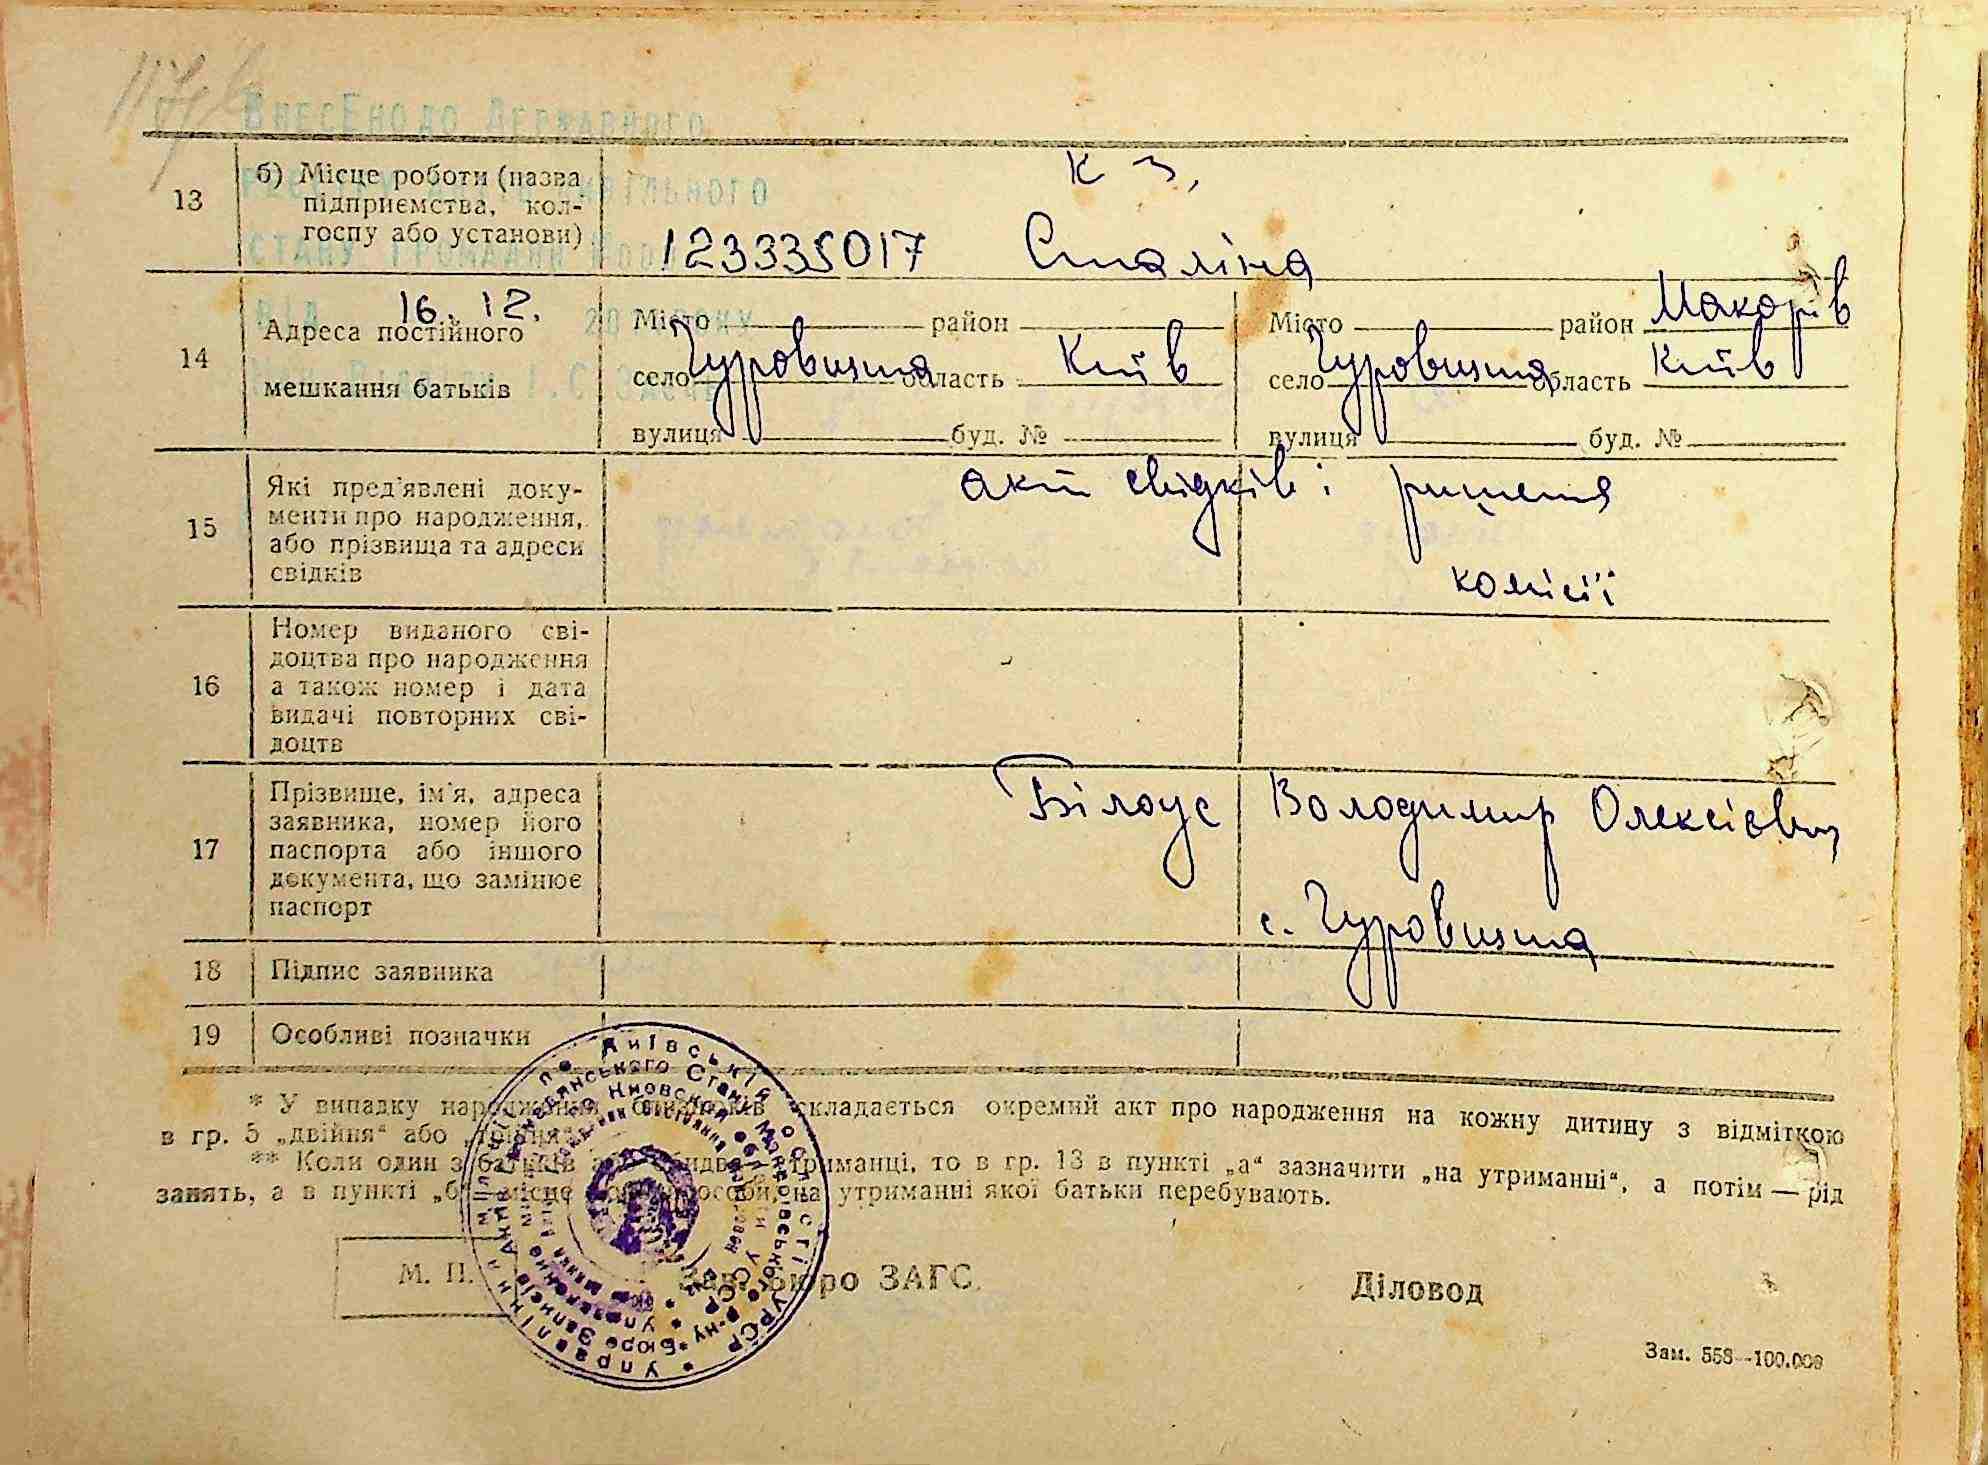 ВнесЕно до Державного
13
б) Місце роботи (назва
підприємства, кол-
госпу або установи)
К З,
123335017 Сталіна
СТАНУ ГРОМАДЯН
ВІД 16.12.
14
Адреса постійного
мешкання батьків
Місто район
село Чуровищя область Київ
вулиця буд. №
Місто район Макарів
село Чуровищя область Київ
вулиця буд. №
15
Які пред'явлені доку-
менти про народження,
або прізвища та адреси
свідків
акт свідків і рішення
комісії
16
Номер виданого сві-
доцтва про народження
а також номер і дата
видачі повторних сві-
доцтв
17
Прізвище, ім'я, адреса
заявника, номер його
паспорта або іншого
документа, що замінює
паспорт
Білоус Володимир Олексієвич
с. Чуровищя
18
Підпис заявника
19
Особливі позначки
* У випадку народження близнюків складається окремий акт про народження на кожну дитину з відміткою
в гр. 5 „двійня“ або „трійня“
** Коли один з батьків або обидва утриманці, то в гр. 13 в пункті „а“ зазначити „на утриманні“, а потім — рід
занять, а в пункті „б“ місце особи, на утриманні якої батьки перебувають.
М. П.
Зав. Бюро ЗАГС
Діловод
Зам. 558—100.000